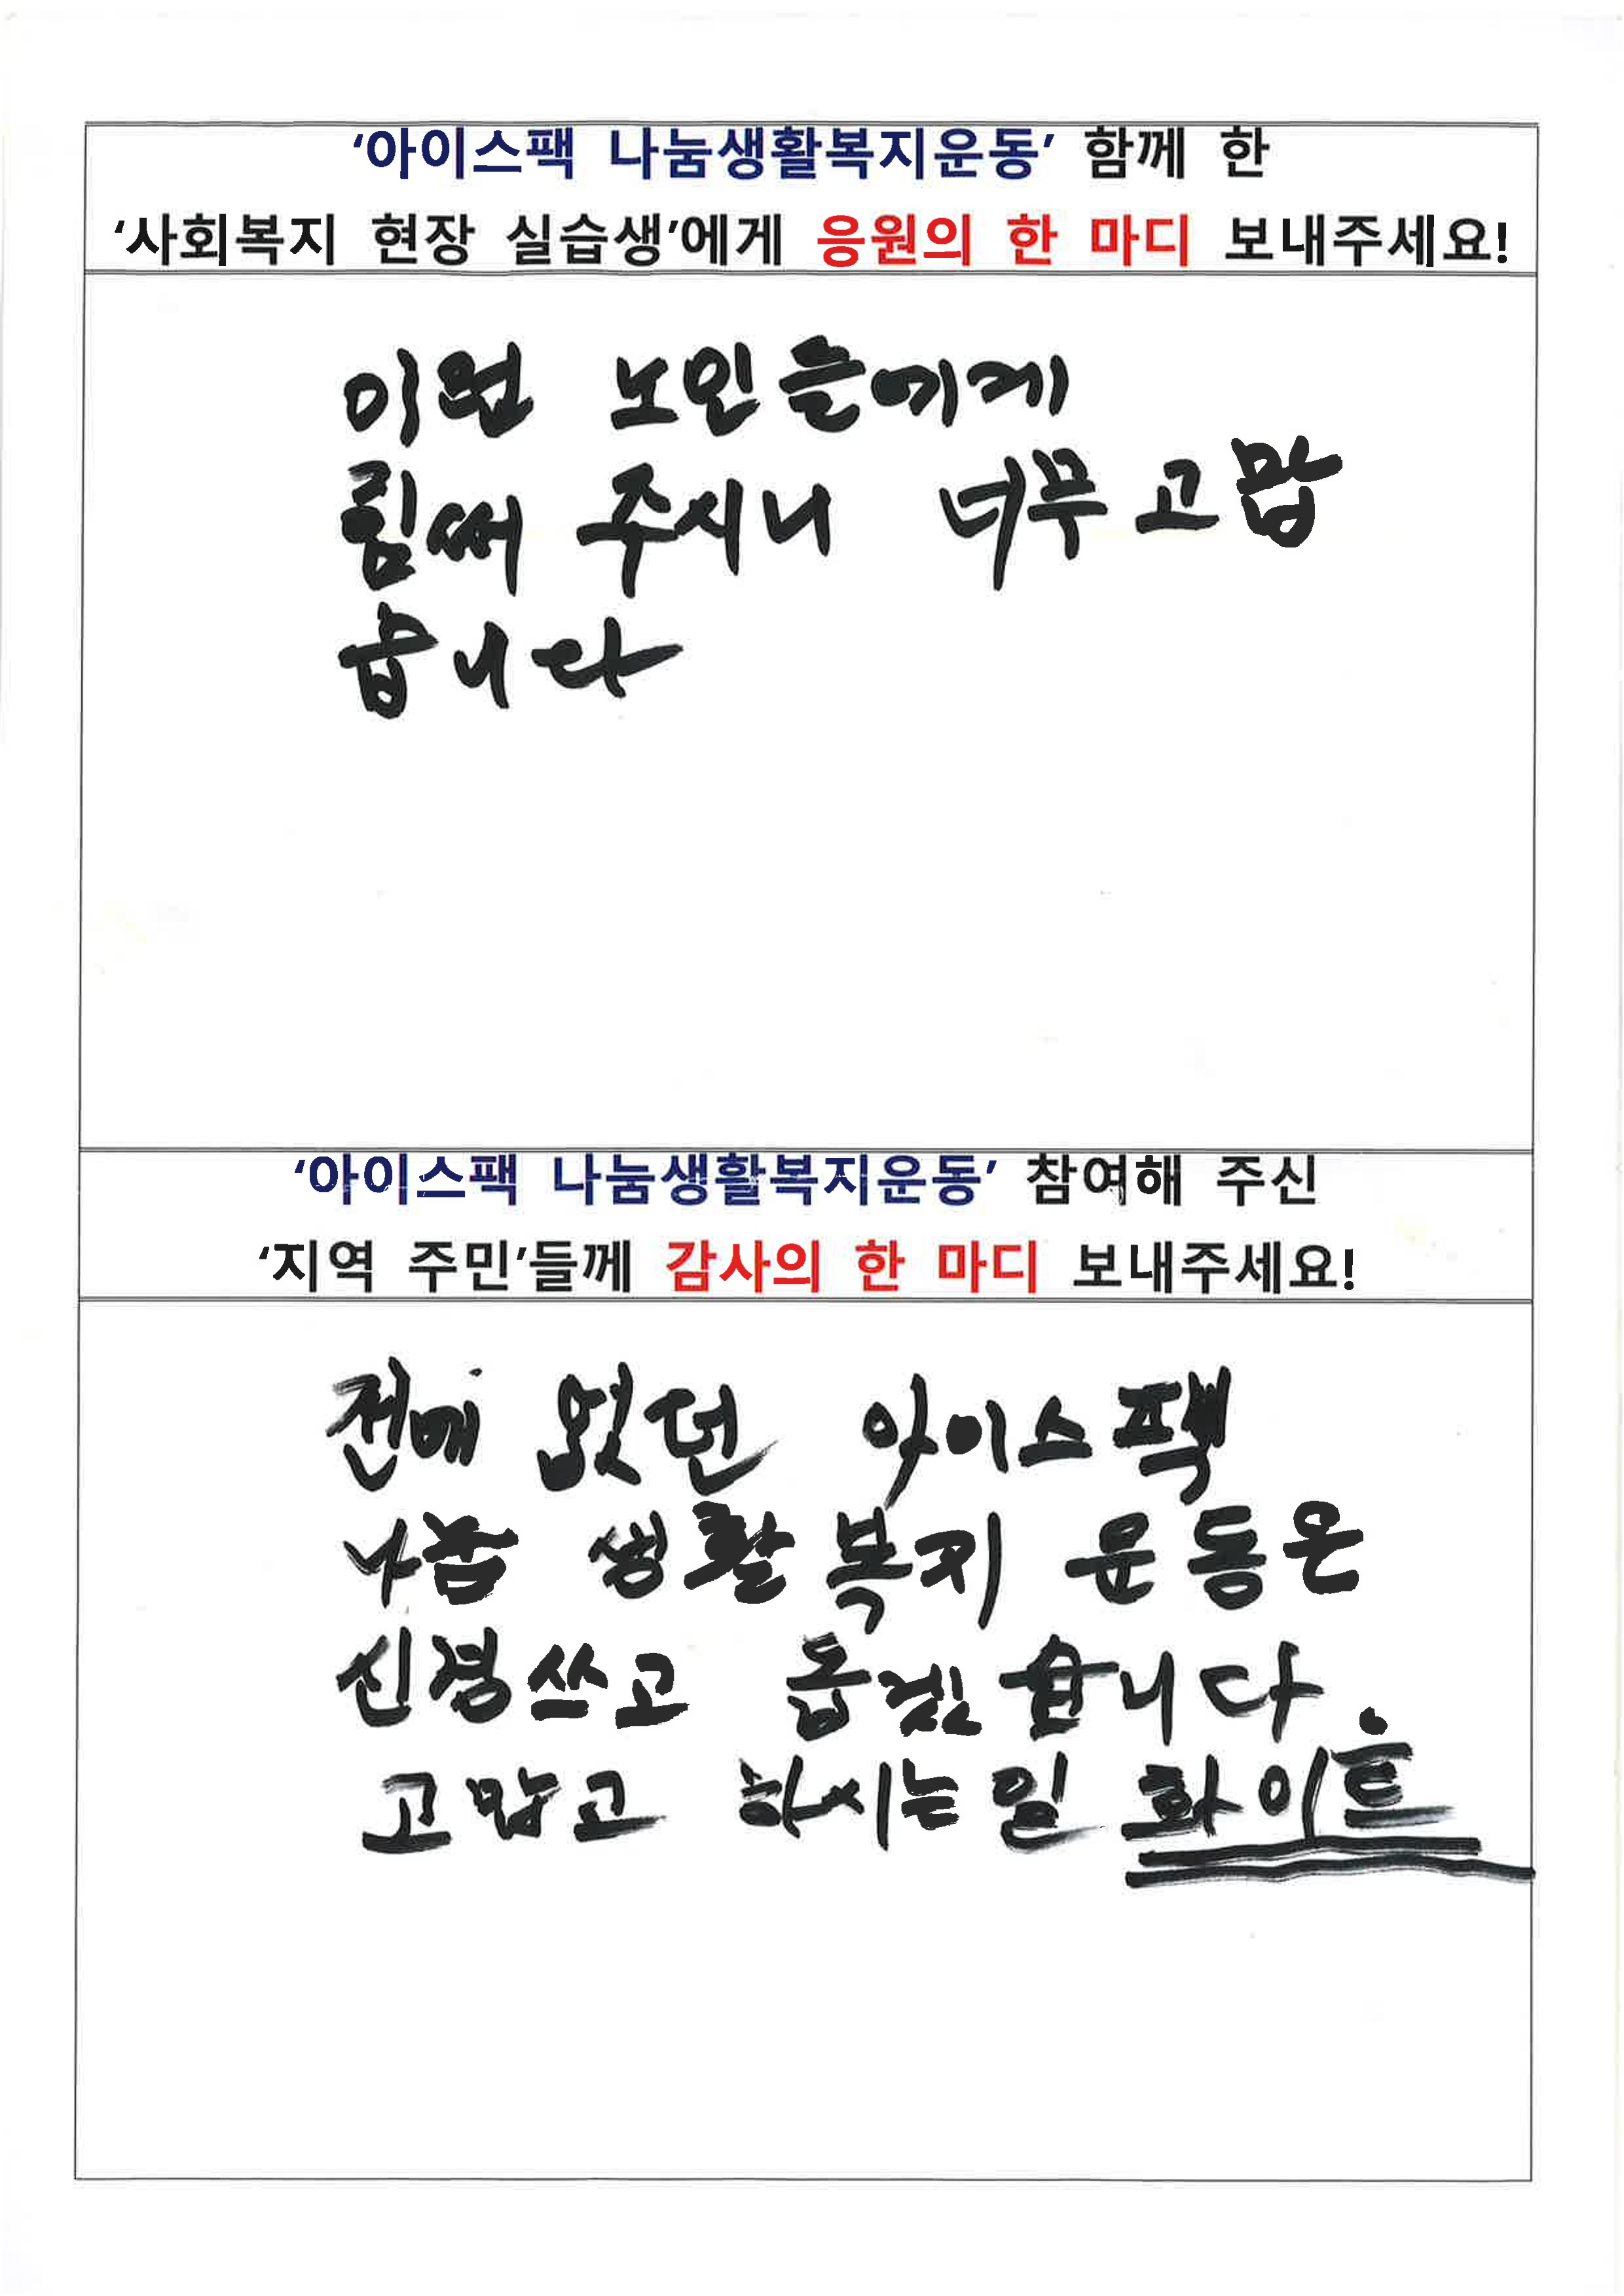 ‘아이스팩 나눔생활복지운동’ 함께 한
‘사회복지 현장 실습생’에게 응원의 한 마디 보내주세요!
이원 노인들에게
힘써 주시니 너무 고맙
습니다
‘아이스팩 나눔생활복지운동’ 참여해 주신
‘지역 주민’들께 감사의 한 마디 보내주세요!
전에 없던 아이스팩
나눔 생활 복지 운동은
신경쓰고 돕겠습니다.
고맙고 하시는 일 화이트